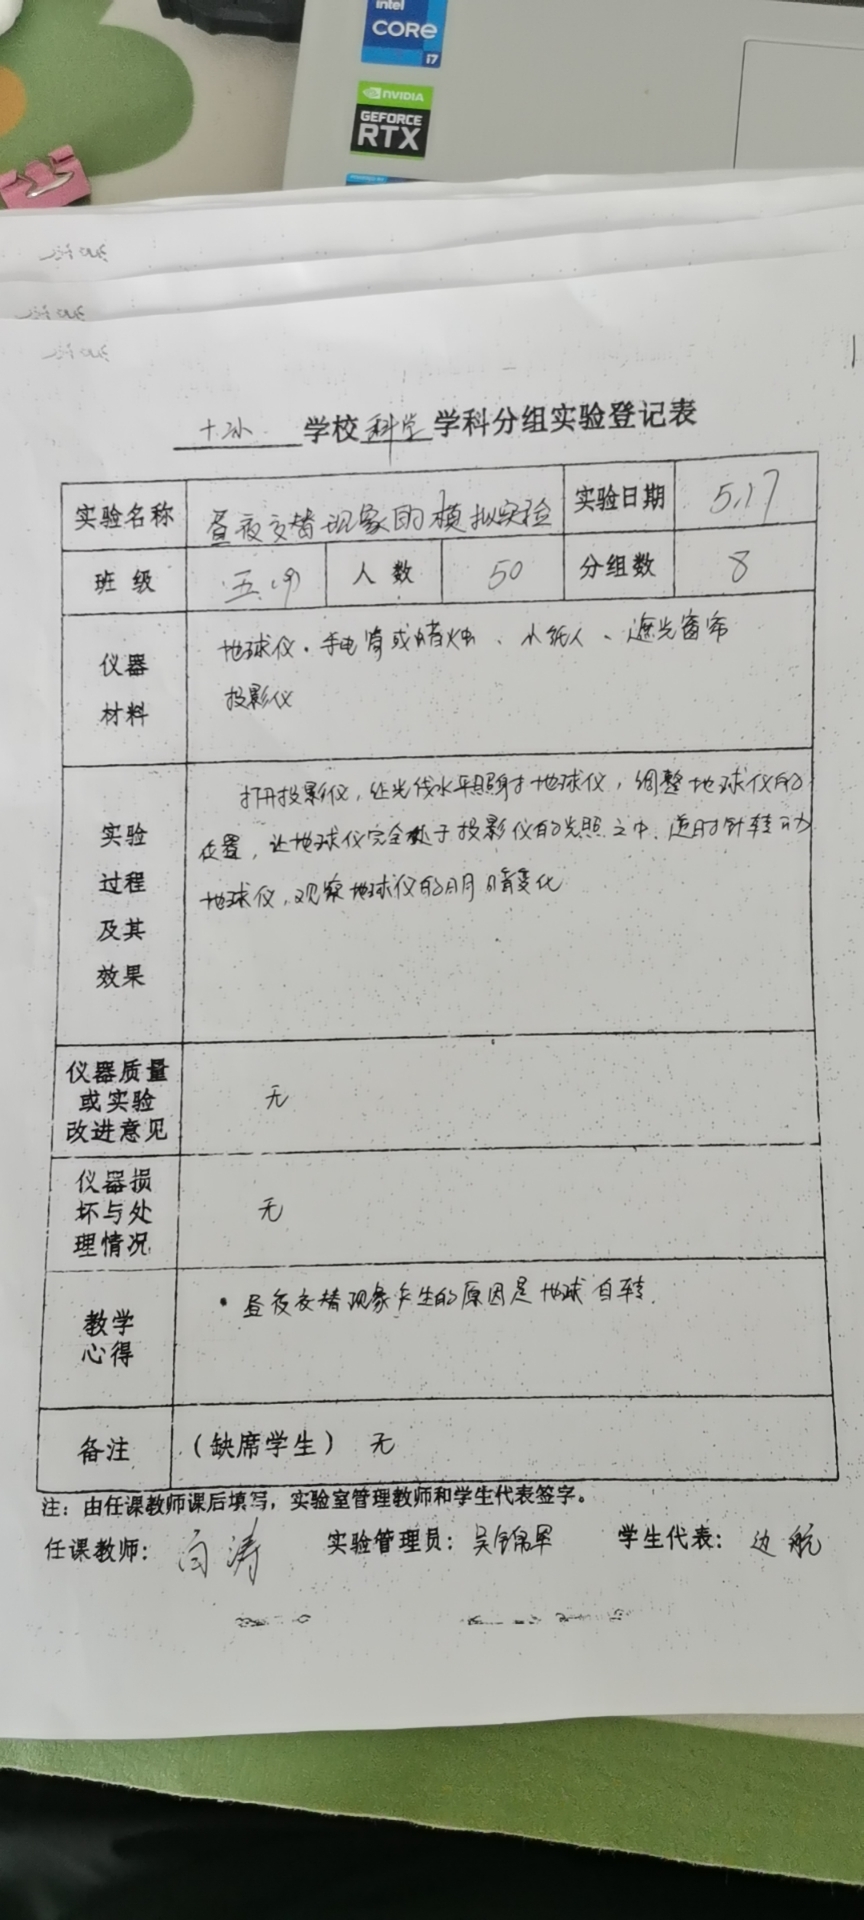 intel
CORE
i7
NVIDIA
GEFORCE
RTX
十小 学校 科学 学科分组实验登记表
实验名称 昼夜交替现象的模拟实验 实验日期 5.17
班级 五. 人数 50 分组数 8
仪器材料 地球仪、手电筒或蜡烛、小纸人、遮光窗帘
投影仪
实验过程及其效果 打开投影仪,让光线水平照射于地球仪,调整地球仪的
位置,让地球仪完全处于投影仪的光照之中.逆时针转动
地球仪,观察地球仪的明暗变化
仪器质量或实验改进意见 无
仪器损坏与处理情况 无
教学心得 昼夜交替现象产生的原因是地球自转.
备注 (缺席学生) 无
注:由任课教师课后填写,实验室管理教师和学生代表签字。
任课教师:白涛 实验管理员:吴锦军 学生代表:边航